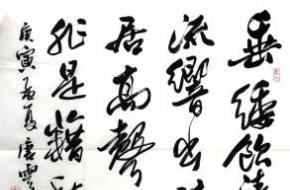 垂緌飲清
流響出
居高聲
非是藉秋
庚寅孟夏唐雲